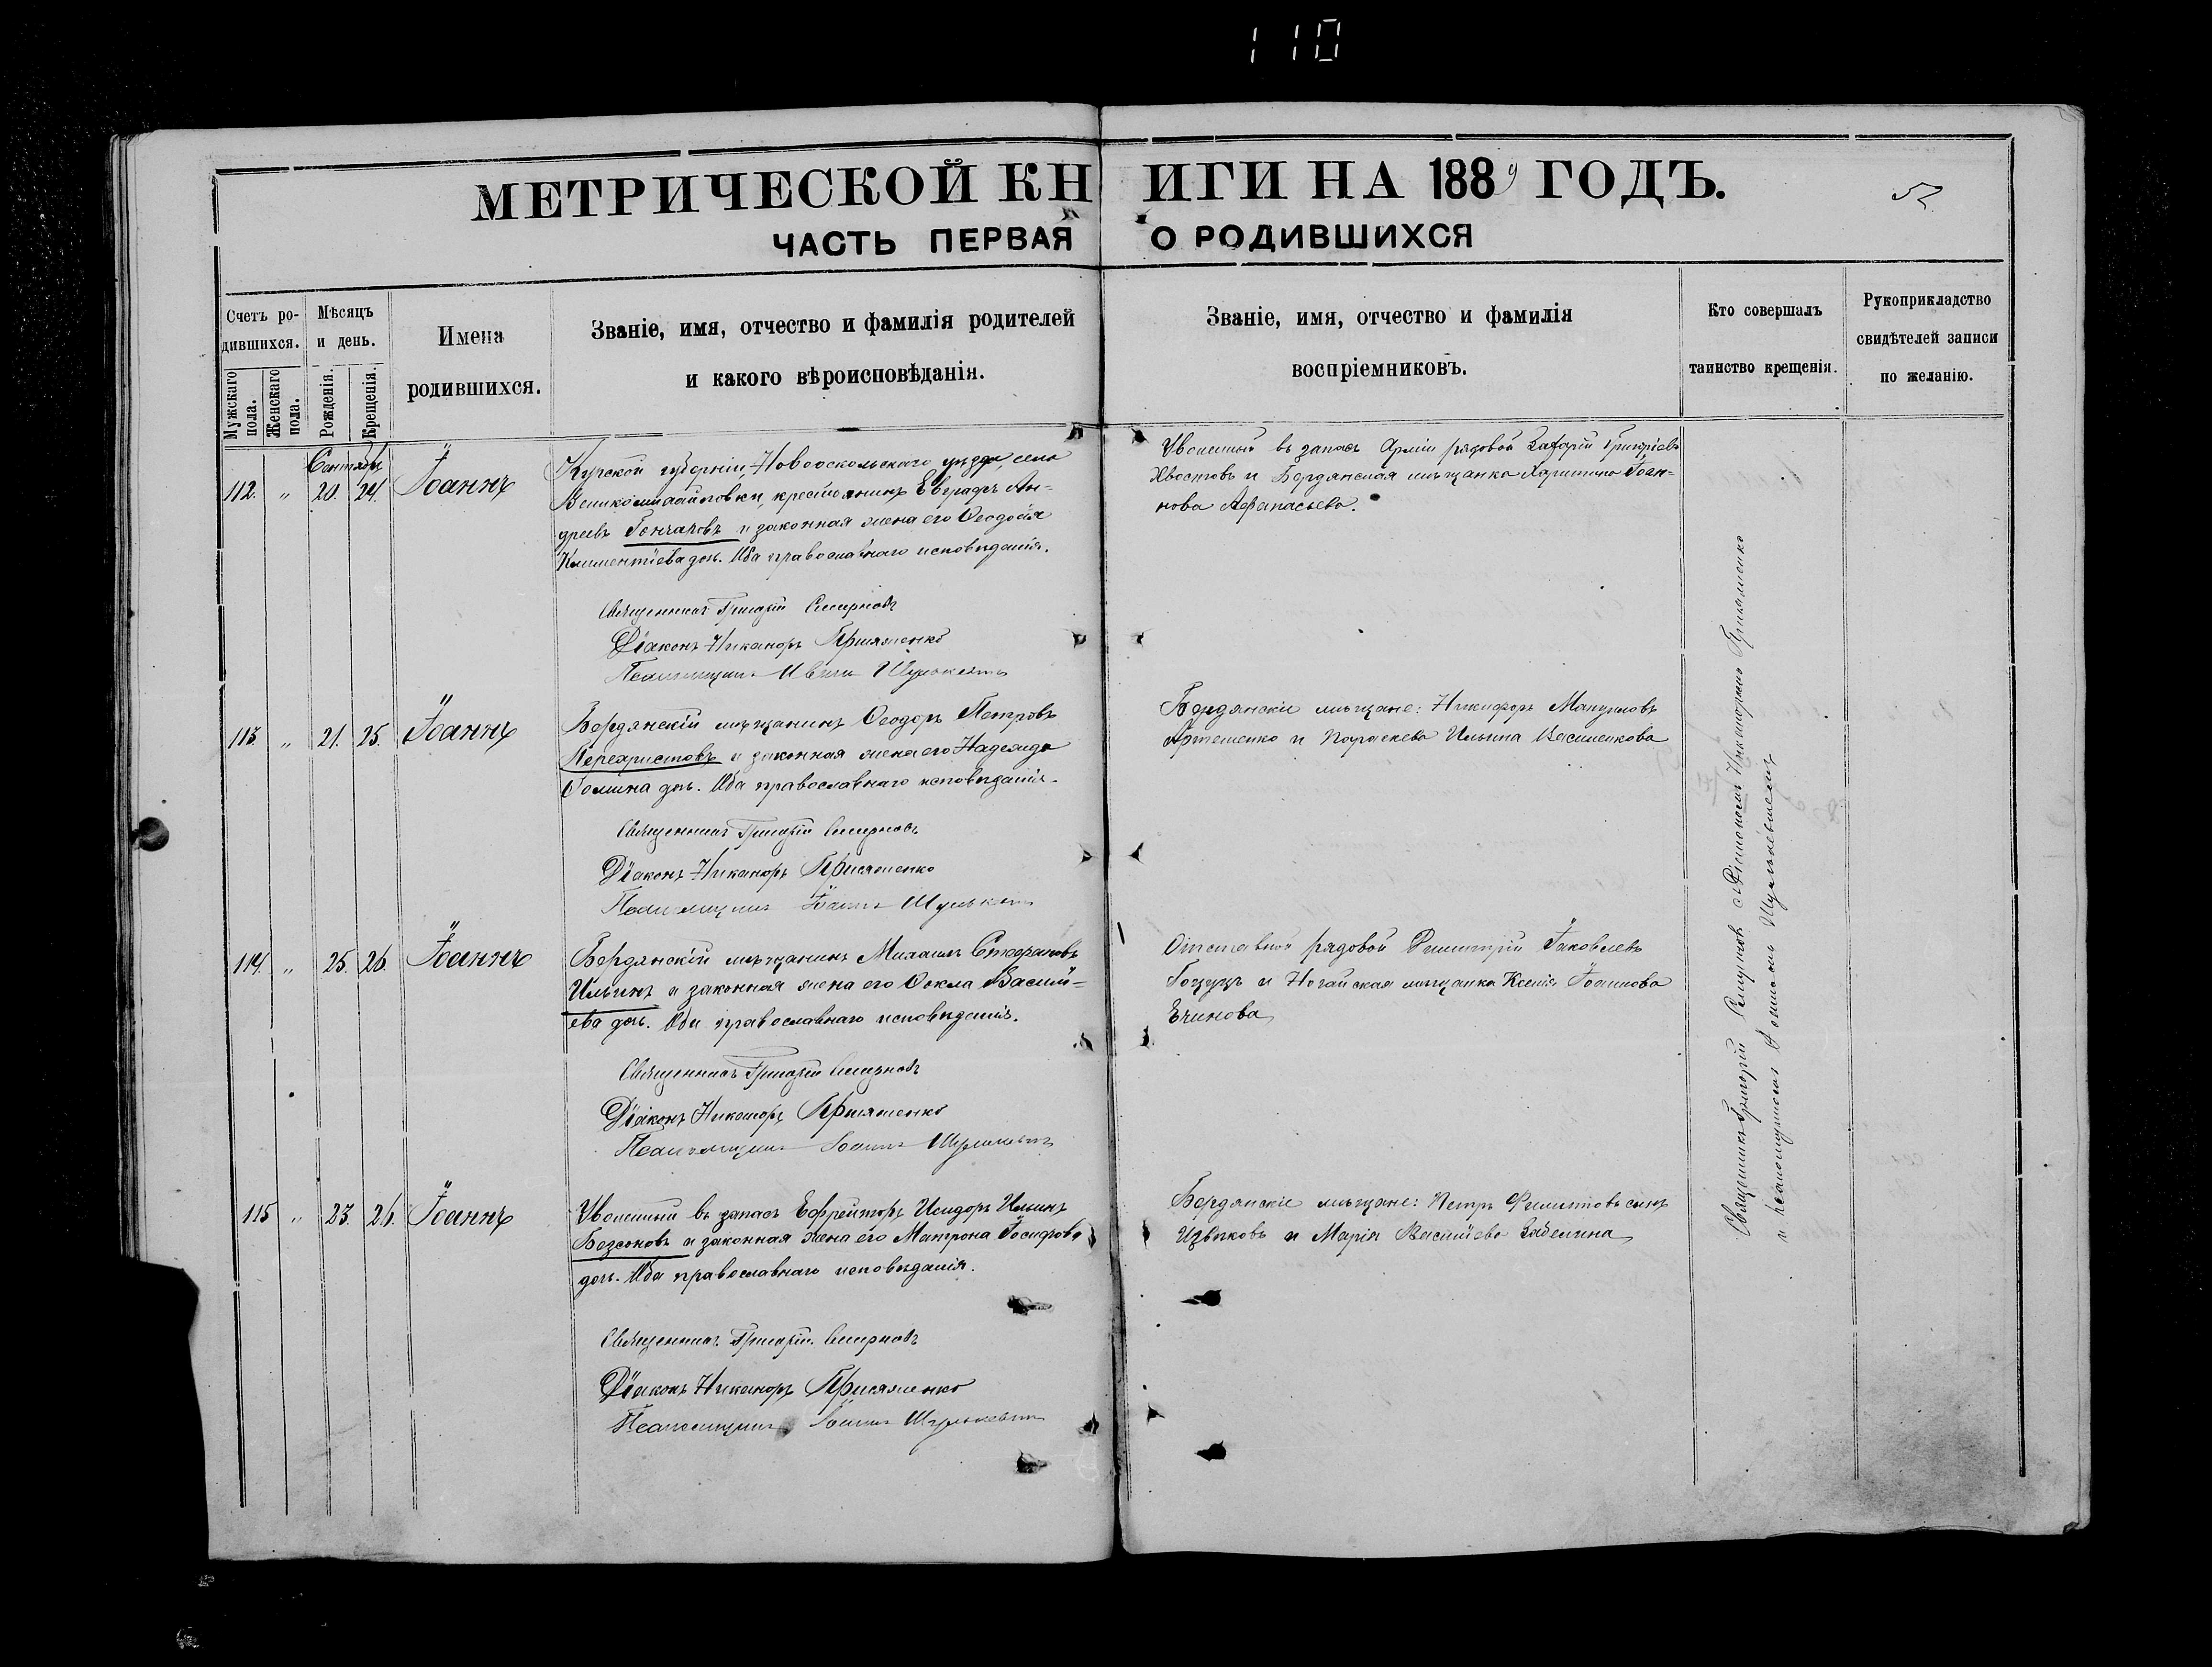 110
МЕТРИЧЕСКОЙ КНИГИ НА 1889 ГОДЪ.
52
ЧАСТЬ ПЕРВАЯ О РОДИВШИХСЯ
Счетъ ро-
дившихся.
Мужскаго пола.
Женскаго пола.
Мѣсяцъ
и день.
Рожденія.
Крещенія.
Имена
родившихся.
Званіе, имя, отчество и фамилія родителей
и какого вѣроисповѣданія.
Званіе, имя, отчество и фамилія
воспріемниковъ.
Кто совершалъ
таинство крещенія.
Рукоприкладство
свидѣтелей записи
по желанію.
Сентябрь
112. „ 20. 24. Іоаннъ
Курской губерніи, Новооскольскаго уѣзда, села
Великомихайловки, крестьянинъ Евграфъ Ан-
дреевъ Гончаровъ и законная жена его Ѳеодосія
Климентіева дочь. Оба православнаго исповѣданія.
Священникъ Григорій Смирновъ
Діаконъ Никаноръ Присяженко
Псаломщикъ Шулькевичъ
Уволенный въ запасъ Арміи рядовой Захарій Григоріевъ
Хвостовъ и Бердянская мѣщанка Харитина Іоан-
нова Афанасьева.
113. „ 21. 25. Іоаннъ
Бердянскій мѣщанинъ Ѳеодоръ Петровъ
Перехристовъ и законная жена его Надежда
Ѳомина дочь. Оба православнаго исповѣданія.
Священникъ Григорій Смирновъ
Діаконъ Никаноръ Присяженко
Псаломщикъ Іоаннъ Шулькевичъ
Бердянскіе мѣщане: Никифоръ
Артеменко и Параскева Ильина Василенкова
114. „ 25. 26. Іоаннъ
Бердянскій мѣщанинъ Михаилъ Стефановъ
Ильинъ и законная жена его Ѳекла Василі-
ева дочь. Оба православнаго исповѣданія.
Священникъ Григорій Смирновъ
Діаконъ Никаноръ Присяженко
Псаломщикъ Іоаннъ Шулькевичъ
Отставной рядовой Димитрій Іаковлевъ
и Ногайская мѣщанка Ксенія Іоаннова
Ечинова
115 „ 23. 26. Іоаннъ
Уволенный въ запасъ Ефрейторъ Исидоръ Ильинъ
Безсоновъ и законная жена его Матрона Іосифова
дочь. Оба православнаго исповѣданія.
Священникъ Григорій Смирновъ
Діаконъ Никаноръ Присяженко
Псаломщикъ Іоаннъ Шулькевичъ
Бердянскіе мѣщане: Петръ сынъ
Извѣковъ и Марія Василіева Забелина
Священникъ Григорій Смирновъ съ Діакономъ Никаноромъ Присяженко
и псаломщикомъ Іоанномъ Шулькевичемъ